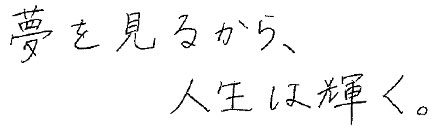 夢を見るから、
人生は輝く。